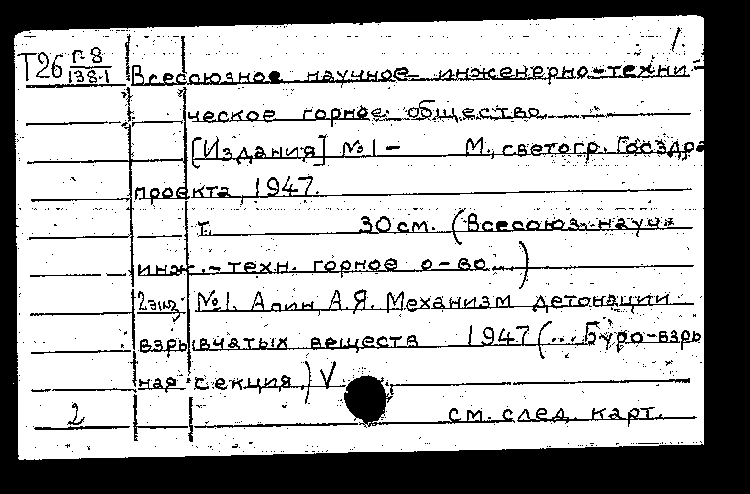 1.
Т26 Г-8/138-1 Всесоюзное научное инженерно-техни-
ческое горное общество.
[Издания] №1- М., светогр. Госздра
проекта, 1947.
т. 30 см. (Всесоюз. науч.
инж.-техн. горное о-во...)
2 экз. №1. Апин, А.Я. Механизм детонации
взрывчатых веществ 1947 (... Буро-взры
ная секция.) V
2 см. след. карт.